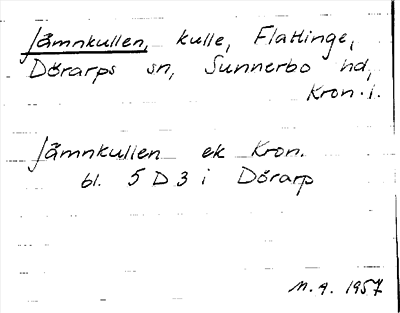 Jämnkullen, kulle, Flattinge,
Dörarps sn, Sunnerbo hd,
Kron. l.
Jämnkullen ek Kron.
bl. 5 D 3 i Dörarp
M. A. 1957